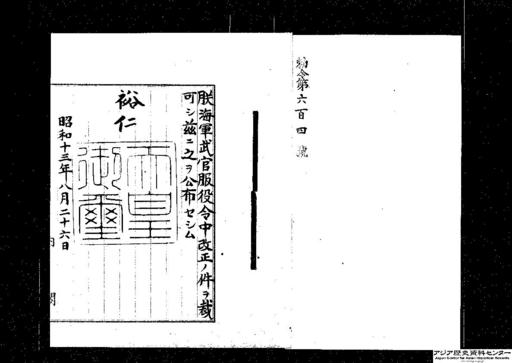 勅令第六百四號
朕海軍武官服役令中改正ノ件ヲ裁
可シ茲ニ之ヲ公布セシム
裕仁
天皇
御璽
昭和十三年八月二十六日
内閣
アジア歴史資料センター
Japan Center for Asian Historical Records